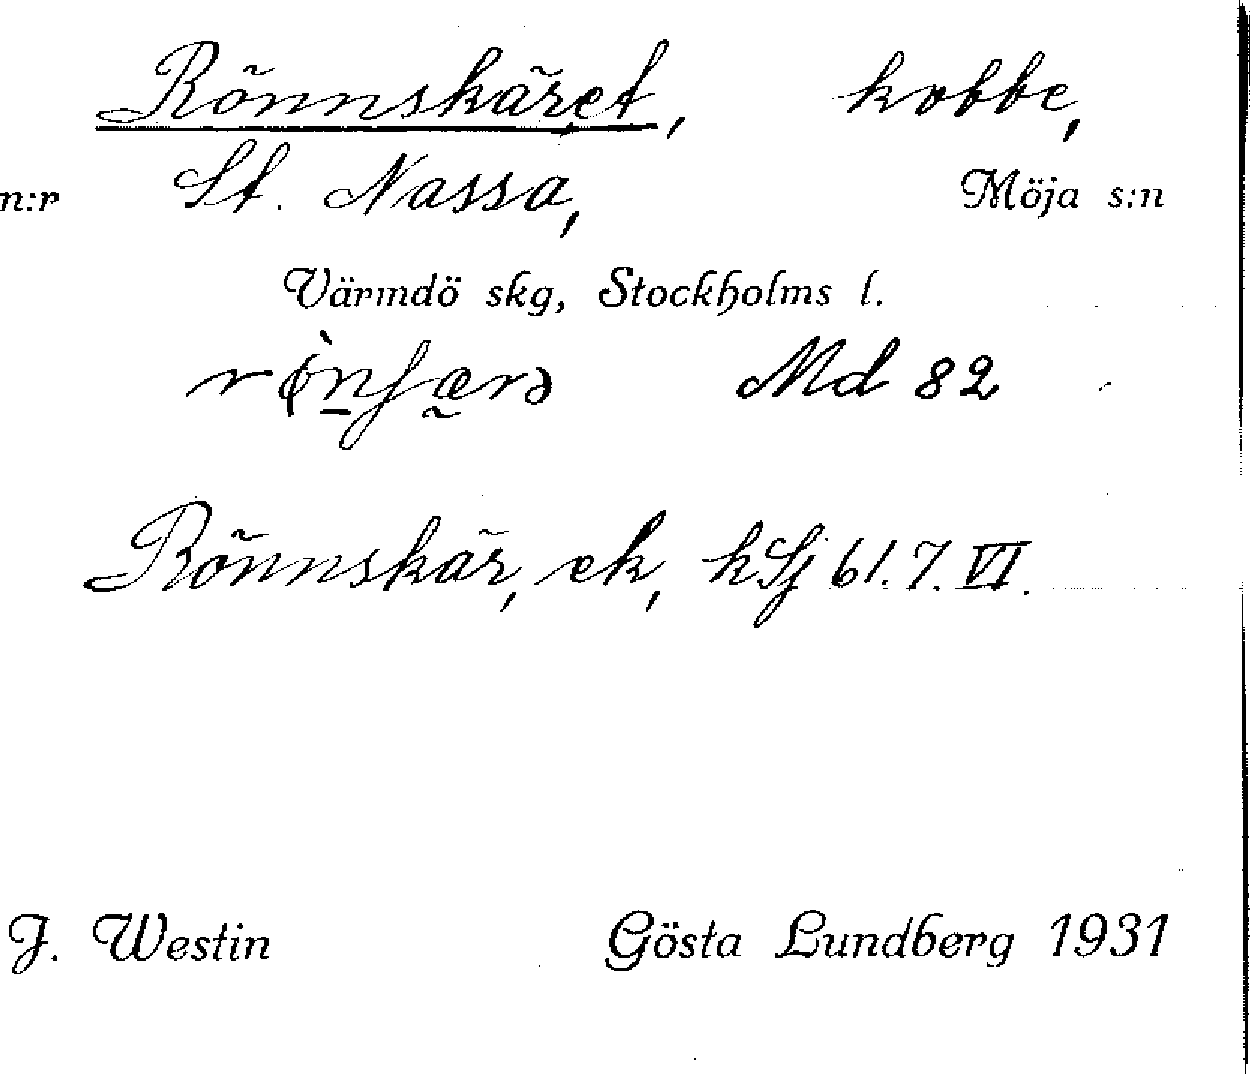 Rönnskäret, kobbe,
n:r St. Nassa, Möja s:n
Värmdö skg, Stockholms l.
Md 82
Rönnskär, ek, kSj 61.7.VI.
J. Westin Gösta Lundberg 1931